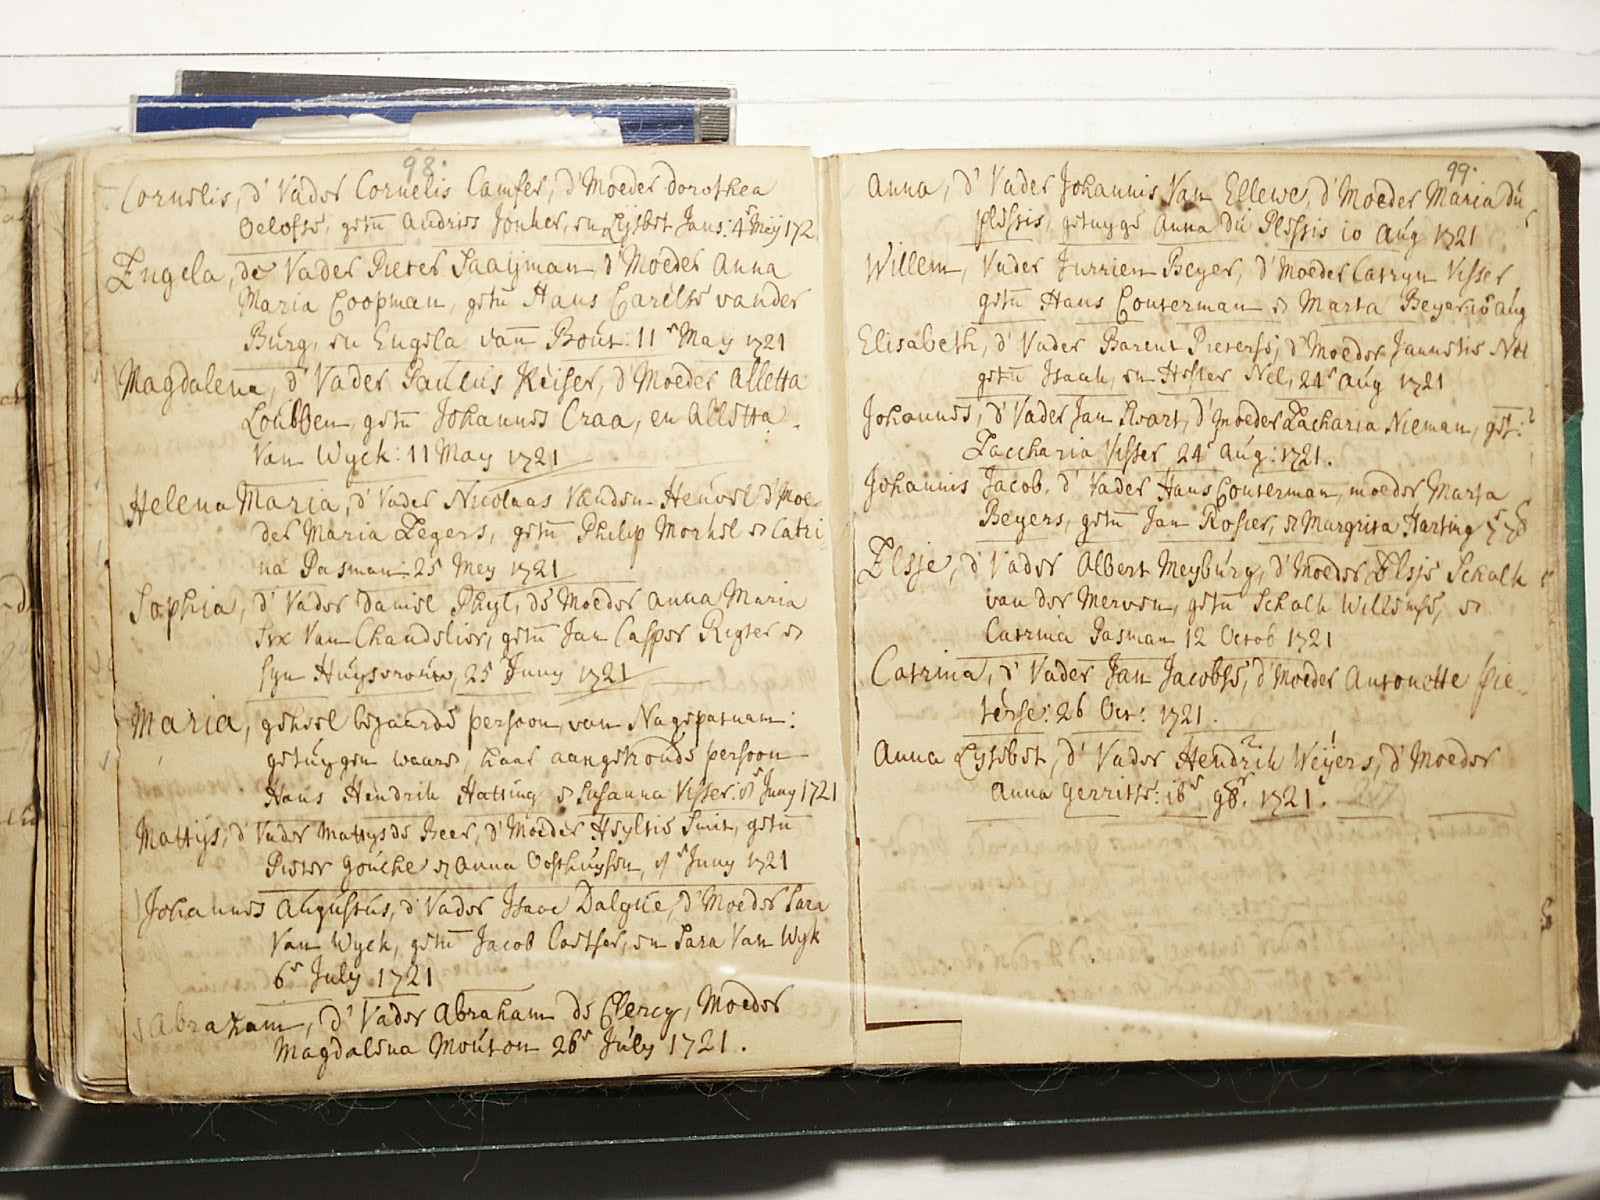 98.
Cornelis, d' Vader Cornelis Camfer, d' Moeder dorothea
Oelofse, getū andries Jonker, en Lijsbet Jans: 4e Meij 172
Engela, de Vader Pieter Saaijman d' Moeder Anna
Maria Coopman, getū Hans Carelse vander
Burg, en Engela van Bout: 11e May 1721
Magdalena, d' Vader Paulus Keiser, d' Moeder Alletta
Lubben, getū Johannes Craa, en Alletta
Van Wyck: 11 May 1721
Helena Maria, d' Vader Nicolaas Vanden Heuvel d' Moe-
der Maria Zegers, getū Philip Morkel & Catri
na Pasman 25 Mey 1721
Sophia, d' Vader Daniel Phyl, de Moeder Anna Maria
Six Van Chandelier, getū Jan Casper Rigter &
syn Huysvrouw, 25 Juny 1721
Maria, geheel bejaarde persoon van Nagapatnam:
getuygen waare, haar aangetroude persoon
Hans Hendrik Hatting & Susanna Visser: Juny 1721
Mattijs, d' Vader Mattys de Beer, d' Moeder Heyltie Smit, getū
Pieter Gouche & Anna Oosthuysen, Juny 1721
Johannes Augustus, d' Vader Isaac Dalgue, d' Moeder Sara
Van Wyck, getū Jacob Coetser, en Sara Van Wyk
6e July 1721
Abraham, d' Vader Abraham de Clercq, Moeder
Magdalena Mouton 26e July 1721.
99.
Anna, d' Vader Johannis Van Ellewe, d' Moeder Maria du
plessis, getuyge Anna du Plessis 10 Aug 1721
Willem, Vader Jurrien Beyer, d' Moeder Catryn Visser
getū Hans Conterman & Marta Beyer Aug
Elisabeth, d' Vader Barent Pieterse, d' Moeder Jannetie Nel
getū Isaak, en Hester Nel, 24e Aug 1721
Johannes, d' Vader Jan Swart, d' Moeder Zacharia Nieman, get:
Zaccharia Visser 24e Aug: 1721.
Johannis Jacob, d' Vader Hans Conterman, moeder Marta
Beyers, getū Jan Rosier, & Margrita Harting
Elsje, d' Vader Albert Meyburg, d' Moeder Elsje Schalk
van der Merven, getū Schalk Willemse, &
Catrina Pasman 12 Octob 1721
Catrina, d' Vader Jan Jacobse, d' Moeder Antonette Pie-
terse: 26 Oct: 1721.
Anna Lijsebet, d' Vader Hendrik Weijers, d' Moeder
Anna Gerritse: 16e 9br. 1721.